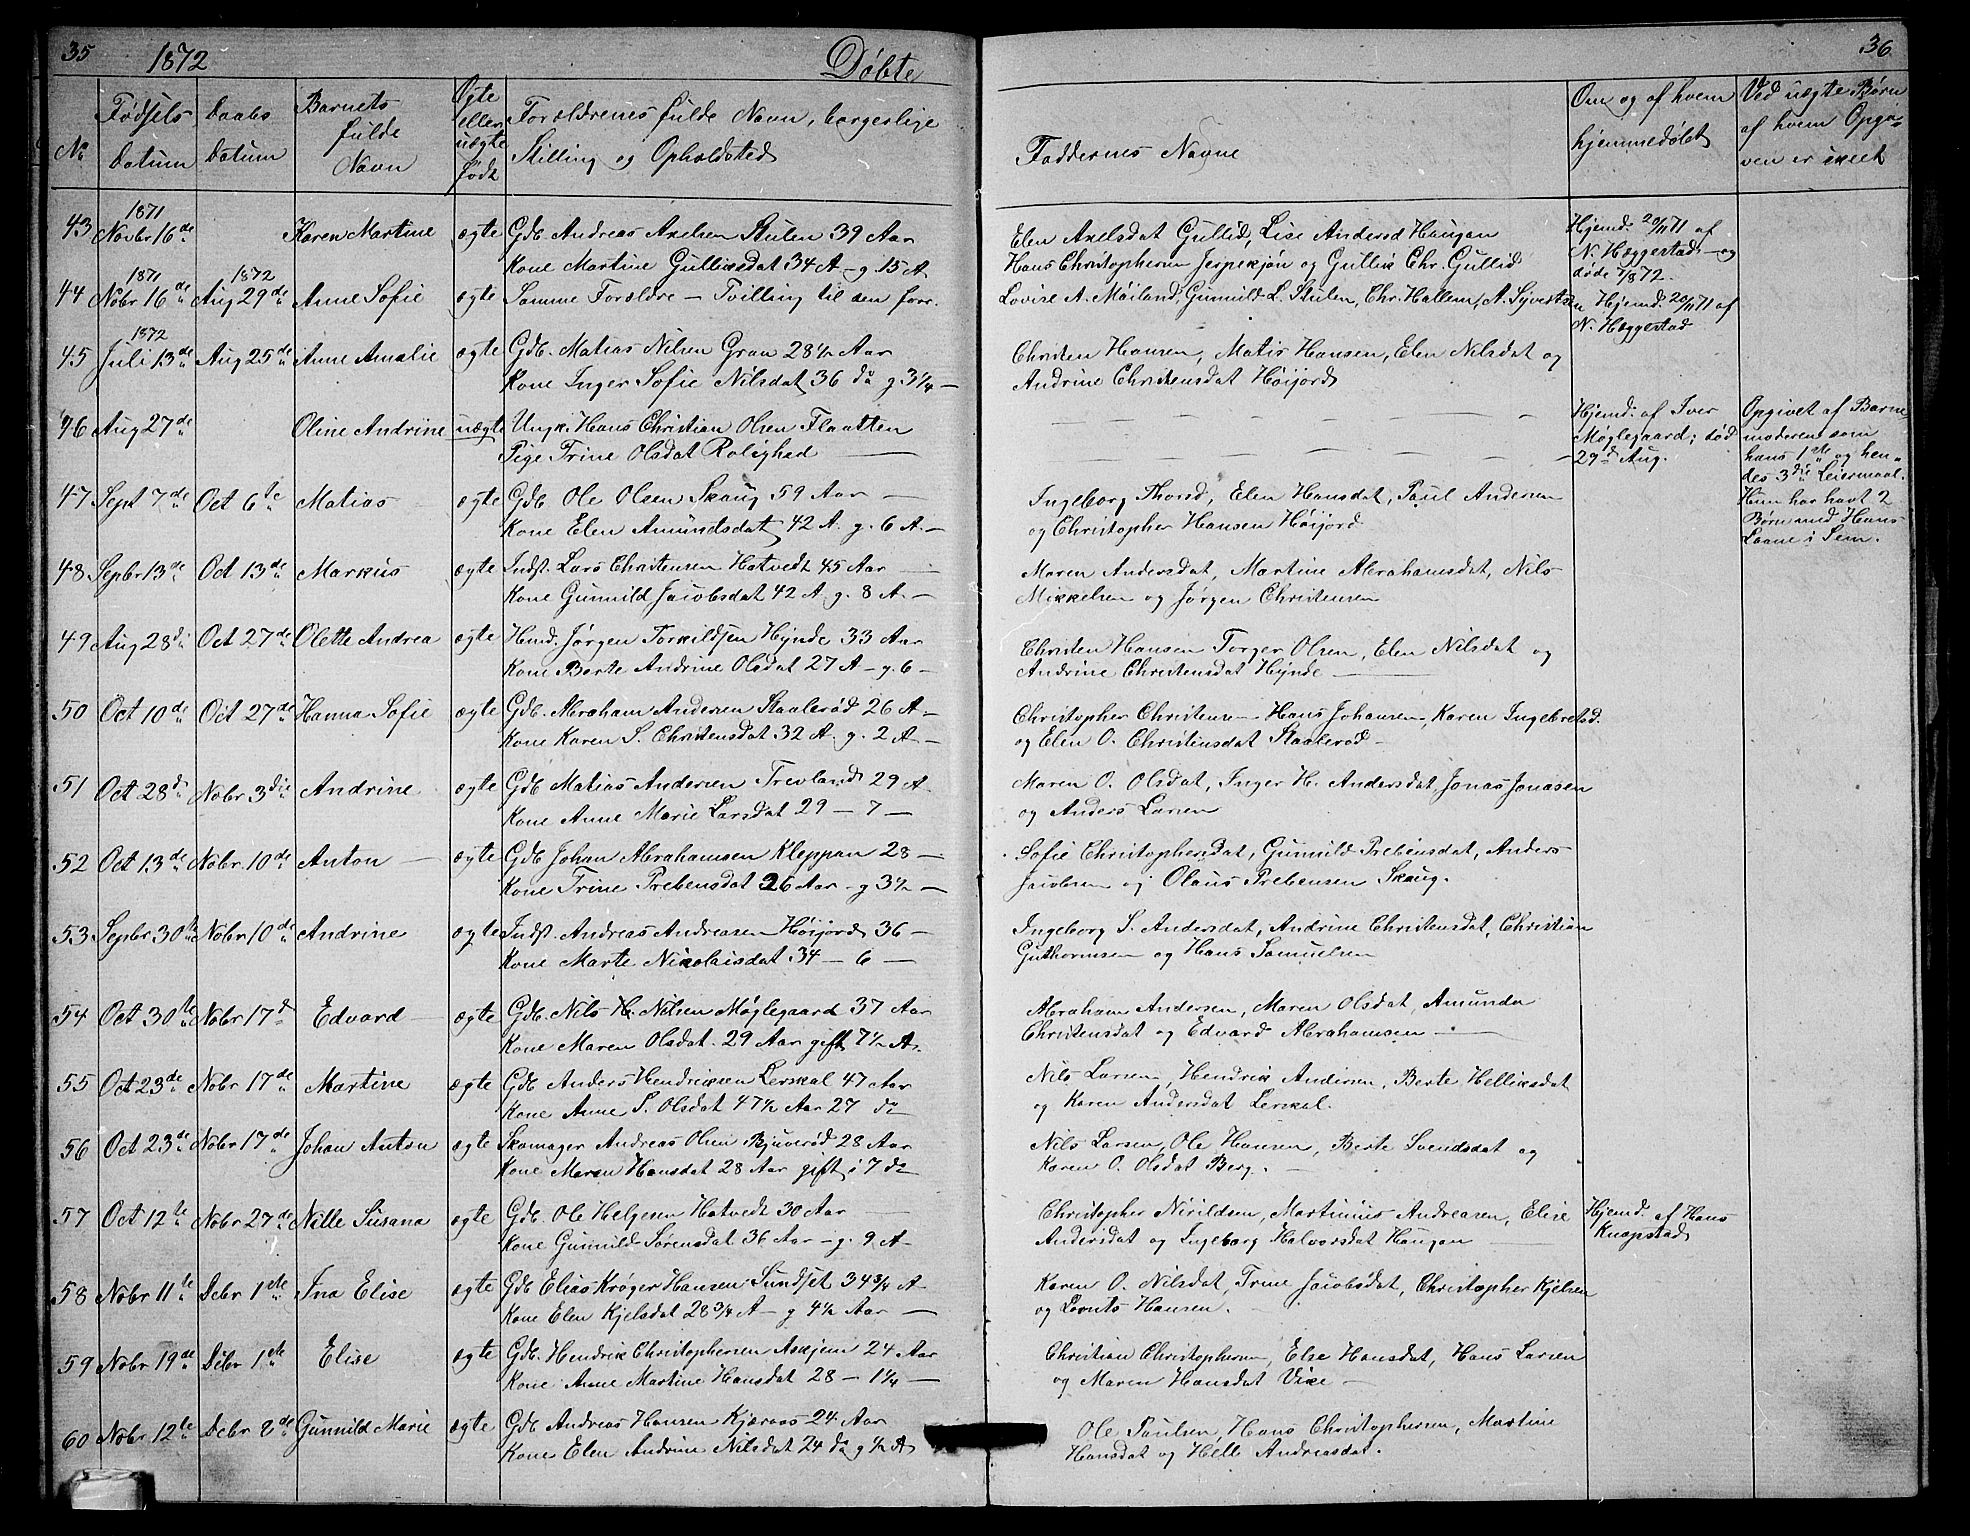 35 1872 Døbte 36
No
Fødsels Datum
Daabs Datum
Barnets fulde Navn
Ægte eller uægte født
Forældrenes fulde Navn, borgerlige
Stilling og Opholdsted
Faddernes Navne
Om og af hvem hjemmedøbt
Ved uægte Børn af hvem Opga- ven er skeet
43 1871 Novbr 16de Karen Martine ægte Gdb. Andreas Axelsen Stulen 39 Aar
Kone Martine Gulliksdat 34 A – g. 15 A
Elen Axelsdat Gullid, Lise Andersd Haugan
Hans Christophersen Jespekjøn og Gullik Chr. Gullid
Hjemd. 20/11 71 af
N. Heggestad og
døde 7/1 872.
44 1871 Nobr 16de 1872 Aug 29de Anne Sofie ægte Samme Forældre – Tvilling til den forr.
Lovise A. Møiland, Gunnild L. Stulen, Chr. Hallem, A. Syvertsen
Hjemd. 20/11 71 af
N. Heggestad
45 1872 Juli 13de Aug 25de Anne Amalie ægte Gdb. Matias Nilsen Gran 28 1/2 Aar
Kone Inger Sofie Nilsdat 36 do g 3 1/4 –
Christen Hansen, Matis Hansen, Elen Nilsdat og
Andrine Christensdat Høijord
46 Aug 27de Oline Andrine uægte Ungk. Hans Christian Olsen Flaatten
Pige Trine Olsdat Rolighed —
Hjemd. af Iver
Møglegaard; død
29d Aug.
Opgivet af Barne
moderen som
hans 1ste og hen-
des 3die Leiermaal.
Hun har havt 2
Børn med Hans
Laane i Sem.
47 Sept 7de Oct 6te Matias ægte Gdb. Ole Olsen Skaug 59 Aar –
Kone Elen Amundsdatt 42 A. g. 6 A –
Ingeborg Thorsd, Elen Hansdat, Paul Andersen
og Christopher Hansen Høijord
48 Sepbr 13de Oct 13de Markus ægte Indst. Lars Christensen Hatvedt 45 Aar –
Kone Gunnild Jacobsdat 42 A. g. 8 A –
Maren Andersdat, Martine Abrahamsdat, Nils
Mikkelsen og Jørgen Christensen
49 Aug 28d Oct 27de Olette Andrea ægte Hmd. Jørgen Torkildsen Hynde 33 Aar
Kone Berte Andrine Olsdat 27 A – g. 6 –
Christen Hansen Torger Olsen, Elen Nilsdat og
Andrine Christensdat Hynde —
50 Oct 10de Oct 27de Hanna Sofie ægte Gdb. Abraham Andersen Staalerød 26 A –
Kone Karen S. Christensdat 32 A. g. 2 A –
Christopher Christensen – Hans Johansen, Karen Ingebretsd.
og Elen O. Christensdat Staalerød –
51 Oct 28d Nobr 3die Andrine ægte Gdb Matias Andersen Trevland 29 A.
Kone Anne Marie Larsdat 29 – 7 –
Maren O. Olsdat, Inger H. Andersdat, Jonas Jonasen
og Anders Larsen
52 Oct 13de Nobr 10de Anton – ægte Gdb Johan Abrahamsen Kleppan 28 –
Kone Trine Prebensdat 26 Aar – g 3 1/2 –
Sofie Christophersdat, Gunnild Prebensdat, Anders
Jacobsen og Olaus Prebensen Skaug.
53 Sepbr 30te Nobr 10de Andrine ægte Indst. Andreas Andreasen Høijord 36 –
Kone Marte Nikolaisdat 34 – 6 –
Ingeborg S. Andersdat, Andrine Christensdat, Christian
Guthormsen og Hans Samuelsen
54 Oct 30te Nobr 17d Edvard – ægte Gdb. Nils H. Nilsen Møglegaard 37 Aar
Kone Maren Olsdat. 29 Aar gift 7 1/2 A.
Abraham Andersen, Maren Olsdat, Amunda
Christensdat og Edvard Abrahamsen –
55 Oct 23de Nobr 17de Martine ægte Gdb Anders Hendriksen Lerskal 47 Aar
Kone Anne S. Olsdat 47 1/2 Aar 27 do
Nils Larsen, Hendrik Andersen, Berte Helliksdat
og Karen Andersdat Lerskal.
56 Oct 23de Nobr 17de Johan Anton ægte Skomager Andreas Olsen Bjuerød 28 Aar
Kone Maren Hansdat 28 Aar gift i 7 do
Nils Larsen, Ole Hansen, Berte Svendsdat og
Karen O. Olsdat Berg. –
57 Oct 12te Nobr 27de Nille Susana ægte Gdb. Ole Helgesen Hatvedt 30 Aar –
Kone Gunnild Sørensdat 36 Aar – g. 9 A –
Christopher Nirildsen, Martinius Andreasen, Elise
Andersdat og Ingeborg Halvorsdat Haugan –
Hjemd. af Hans
Knapstad
58 Nobr 11te Debr 1ste Ina Elise ægte Gdb Elias Krøger Hansen Sundset 34 3/4 A
Kone Elen Kjelsdat 28 3/4 A – g 4 1/2 Aar –
Karen O. Nilsdat, Trine Jacobsdat, Christopher Kjelsen
og Lorents Hansen.
59 Nobr 19de Debr 1ste Elise ægte Gdb. Hendrik Christophersen Askjem 24 Aar
Kone Anne Martine Hansdat 28 – 1 1/4 –
Christian Christophersen, Else Hansdat, Hans Larsen
og Maren Hansdat Vike –
60 Nobr 12te Debr 8de Gunnild Marie ægte Gdb Andreas Hansen Kjæraas 24 Aar
Kone Elen Andrine Nilsdat 24 do g 1/2 A
Ole Paulsen, Hans Christophersen, Martine
Hansdat og Helle Andreasdat.